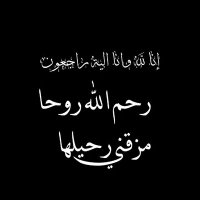 إنا لله وإنا إليه راجعون
رحم الله روحا
مزقني رحيلها